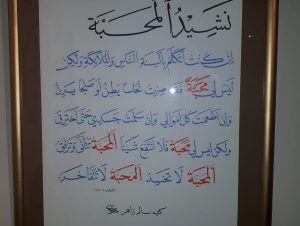 نشيد المحبة
إن كنت أتكلم بألسنة الناس والملائكة ولكن
ليس لي محبة فقد صرت نحاسا يطن أو صنجا يرن
وإن أطعمت كل أموالي وإن سلمت جسدي حتى أحترق
ولكن ليس لي محبة فلا أنتفع شيئا المحبة تتأنى وترفق
المحبة لا تحسد المحبة لا تتفاخر
كتبه سالم زاهر